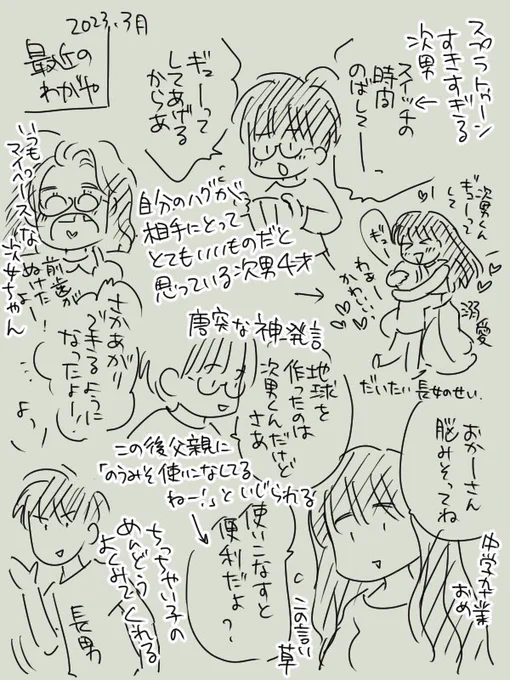 2023.3月
最近の
わが家
スプラトゥーン
すきすぎる
次男
スイッチの
時間
のばしてー
ギューって
してあげる
からあ
自分のハグが
相手にとって
とてもいいものだと
思っている次男4才
次男くん
ギューって
して
ギュ
わぁー
かわ…
溺愛
だいたい長女のせい.
いつもっ
マイペースな
次女ちゃん
前歯が
ぬけたよー!
さかあがり
できるように
なったよー!!
唐突な神発言
地球を
作ったのは
次男くんだけど
さあ
この後父親に
「のうみそ使いこなしてる
ねー!」といじられる
おかーさん
脳みそってね
使いこなすと
便利だよ?
この言い
草
中学卒業
おめ
長男
ちっちゃい子の
めんどう
よくみてくれる